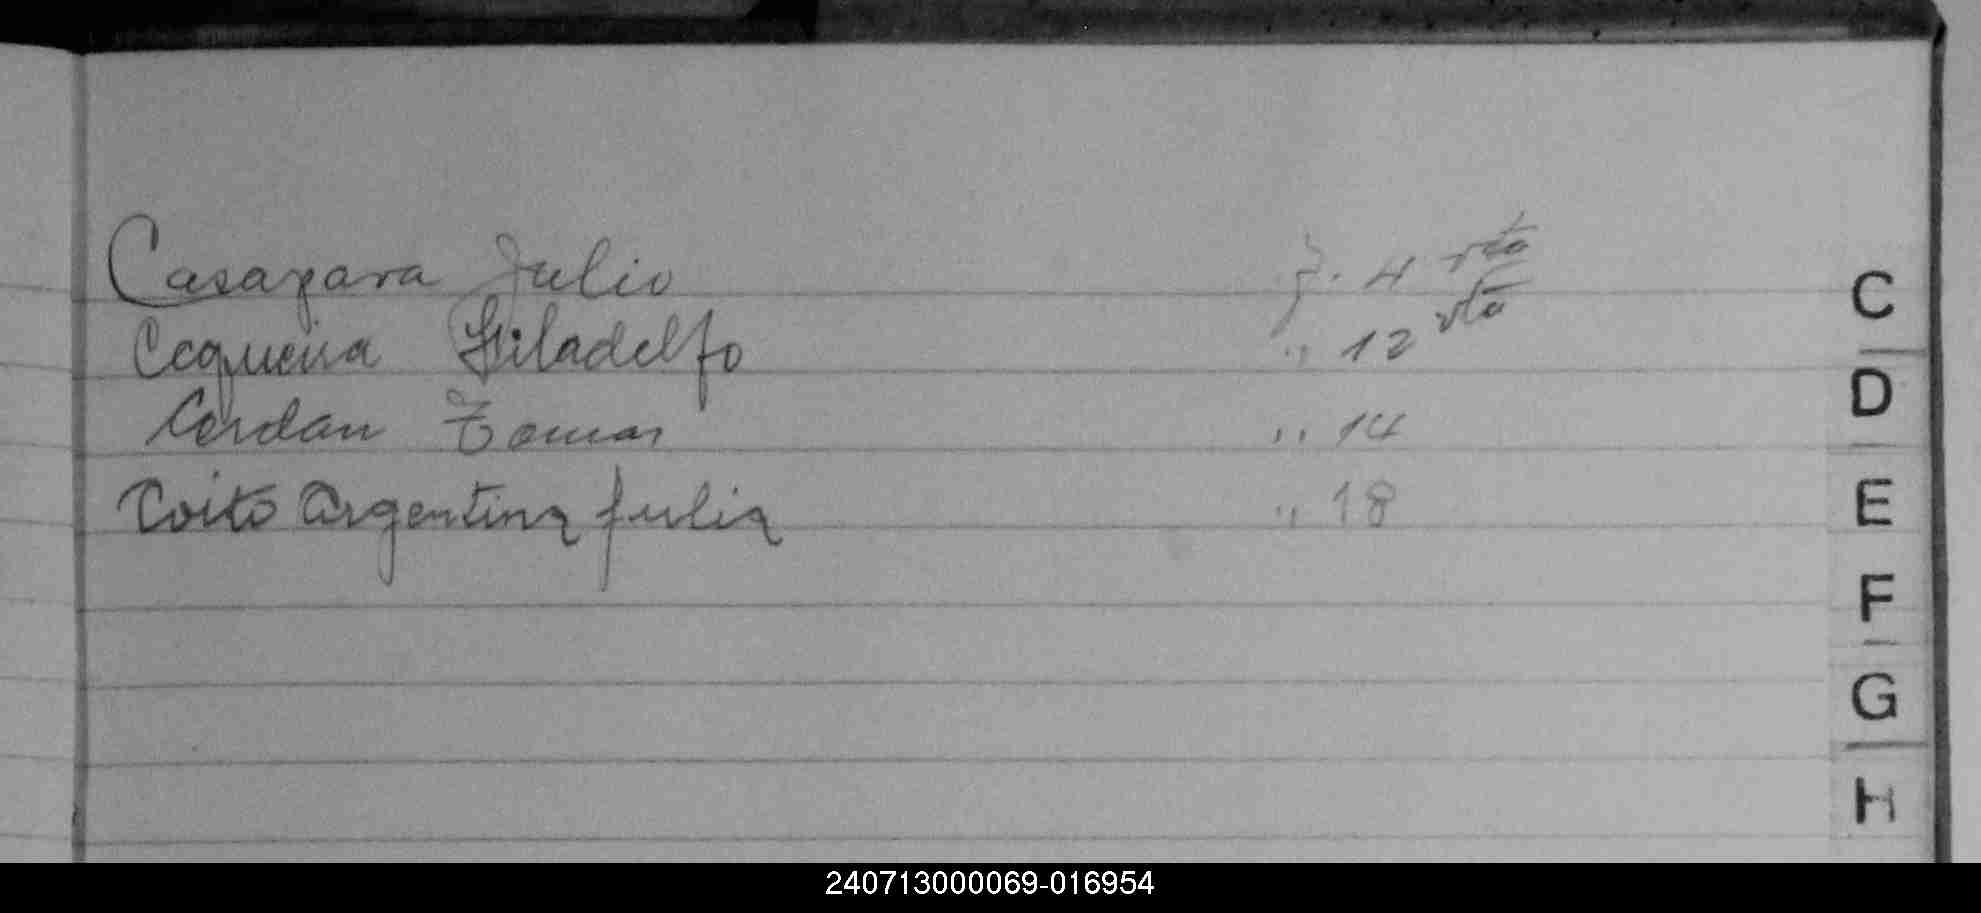 Casapara Julio f. 4 vta
Cequeira Filadelfo " 12 vta
Cerdan Tomas " 14
Coito Argentina Julia " 18
C
D
E
F
G
H
240713000069-016954